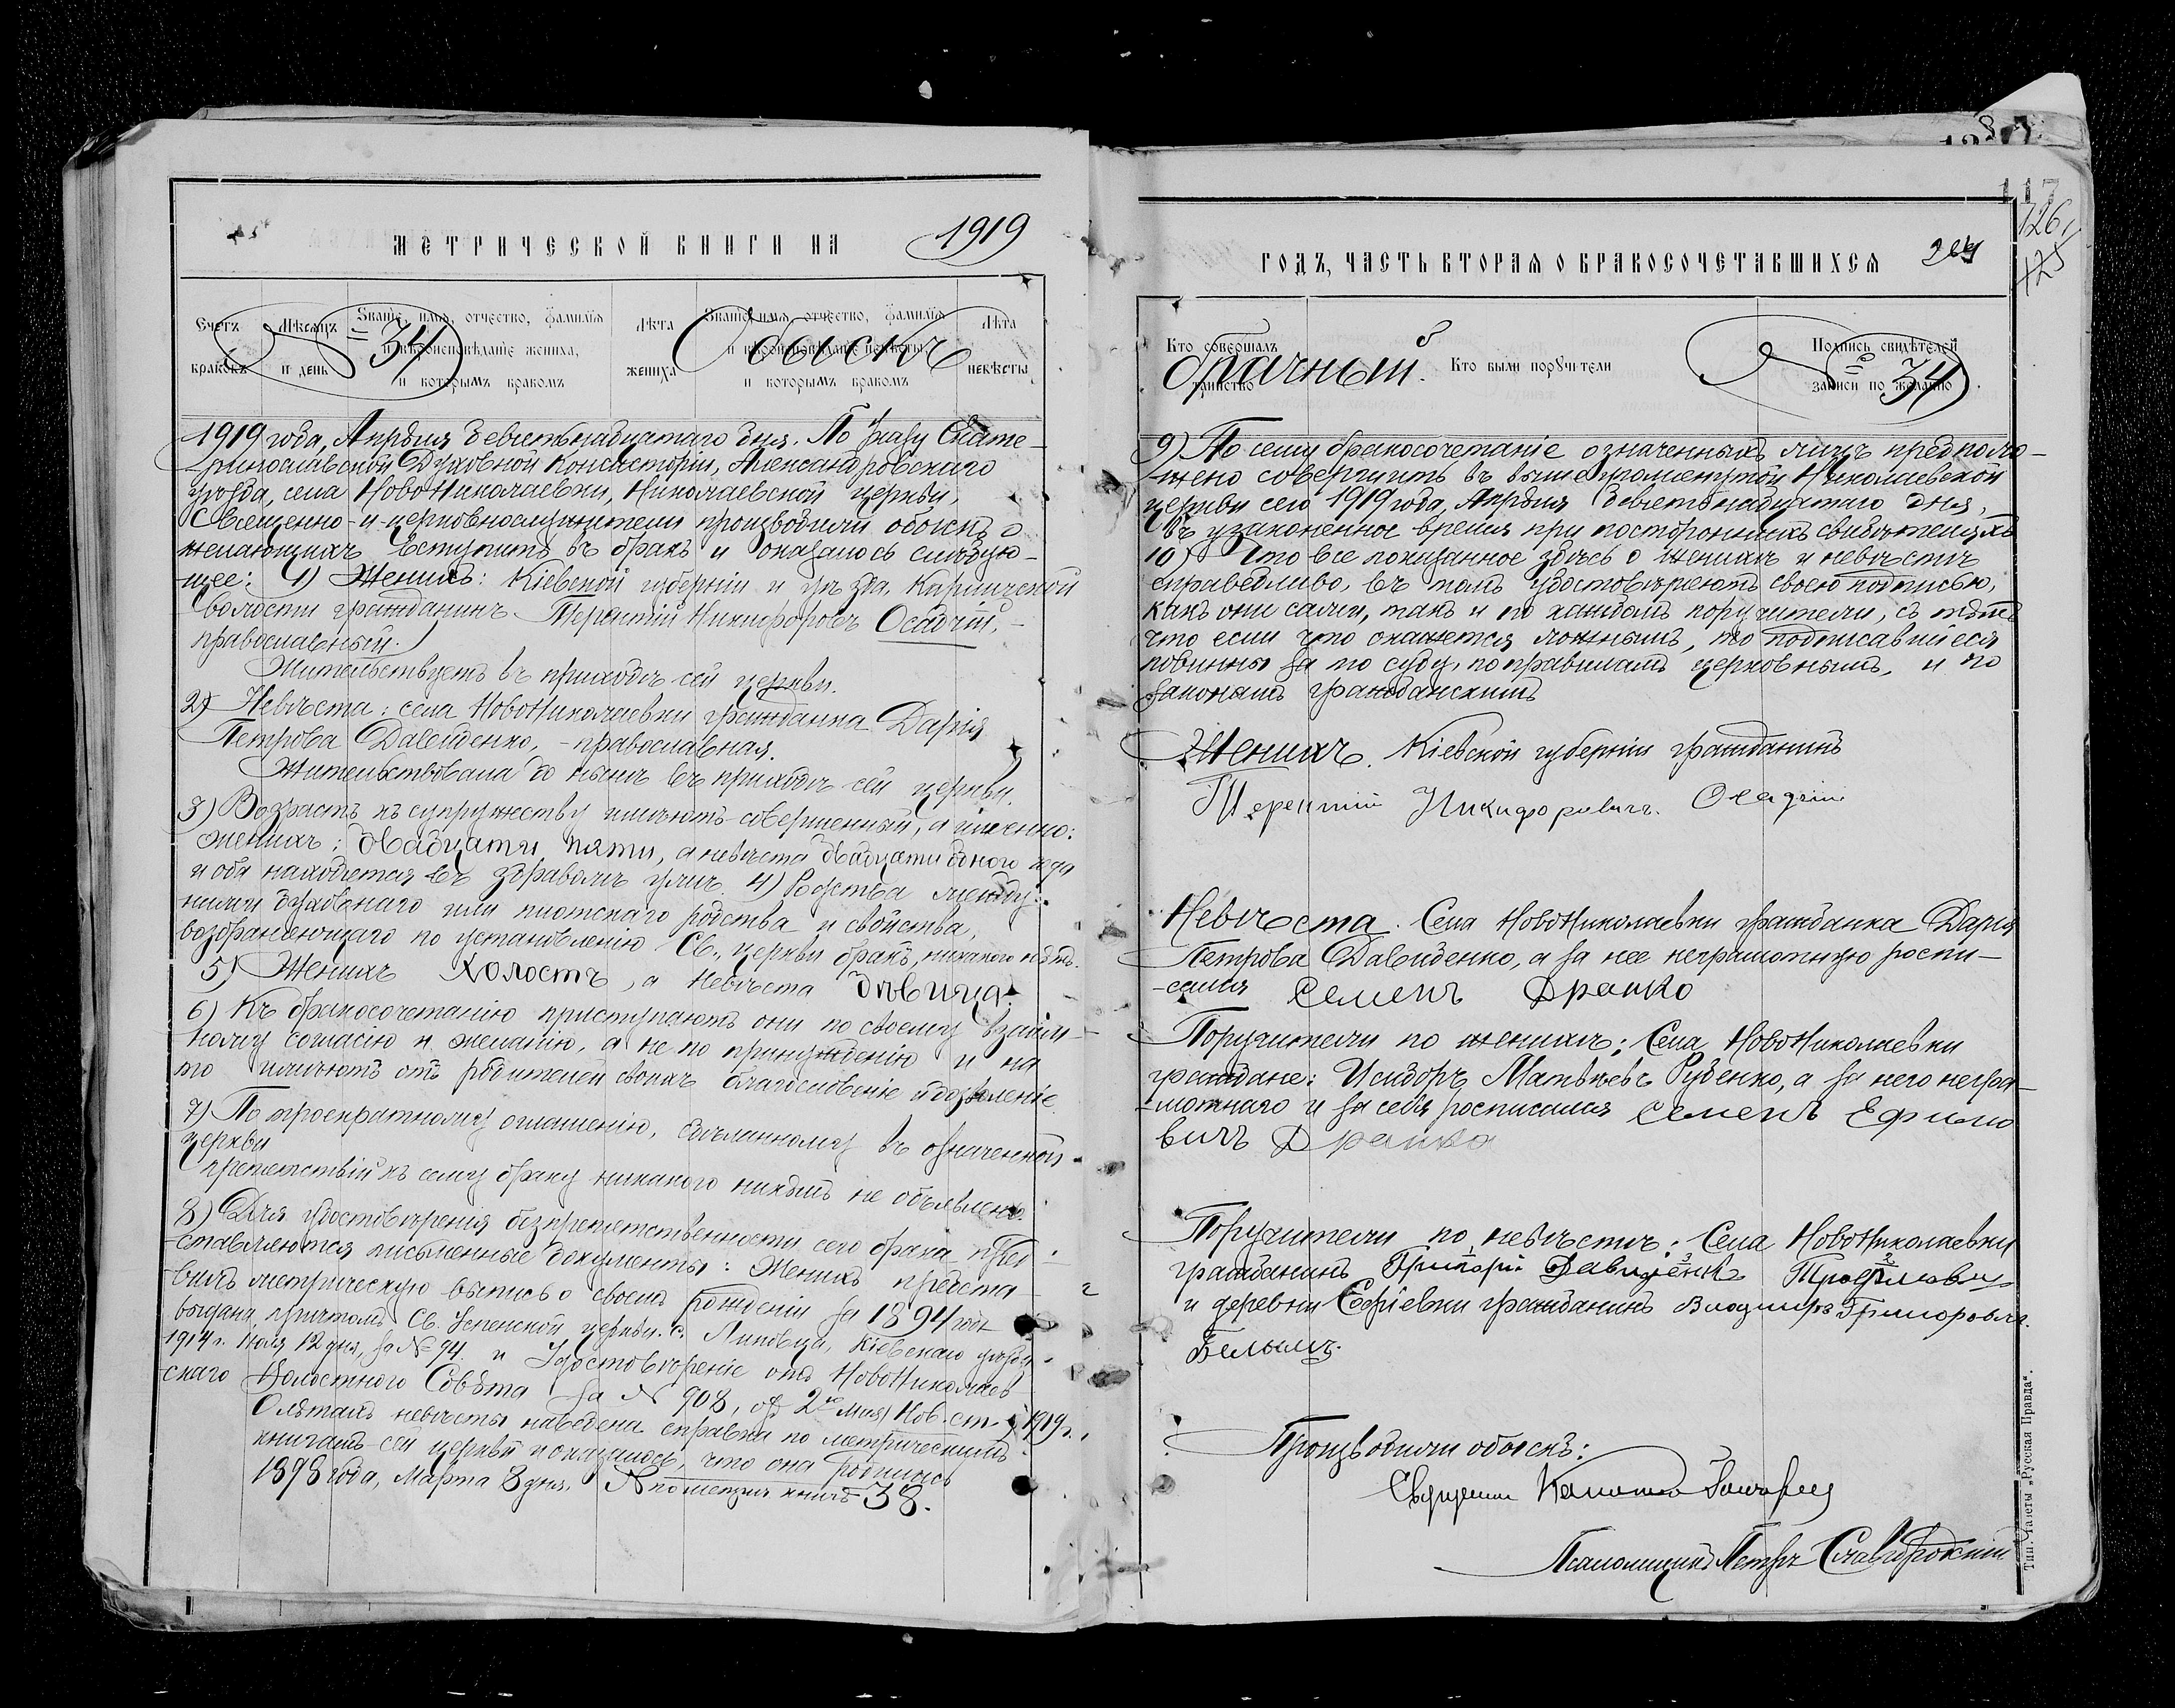 МЕТРИЧЕСКОЙ КНИГИ НА 1919
Счетъ браковъ
Мѣсяцъ и день
Званіе, имя, отчество, фамилія и вѣроисповѣданіе жениха, и которымъ бракомъ
Лѣта жениха
Званіе, имя, отчество, фамилія и вѣроисповѣданіе невѣсты и которымъ бракомъ
Лѣта невѣсты
№ 34 обыскъ
1919 года, Апрѣля девятьнадцатаго дня. По указу Екате-
ринославской Духовной Консисторіи, Александровскаго
уѣзда, села НовоНиколаевки, Николаевской церкви,
Священно-и-церковнослужители производили обыскъ о
желающихъ вступить въ бракъ и оказалось слѣдую-
щее: 1) Женихъ: Кіевской губерніи и уѣзда,
волости гражданинъ Терентій Никифоровъ Осадчій, -
православный.
Жительствуетъ въ приходѣ сей церкви.
2) Невѣста: села НовоНиколаевки гражданка Дарія
Петрова Давиденко, - православная.
Жительствовала до нынѣ въ приходѣ сей церкви.
3) Возрастъ къ супружеству имѣютъ совершенный, а именно:
женихъ: двадцати пяти, а невѣста двадцати одного года
и оба находятся въ здравомъ умѣ. 4) Родства между
ними духовнаго или плотскаго родства и свойства,
возбраняющаго по установленію Св. церкви бракъ, никакого нѣтъ.
5) Женихъ холостъ, а невѣста дѣвица.
6) Къ бракосочетанію приступаютъ они по своему взаим-
ному согласію и желанію, а не по принужденію и на
то имѣютъ отъ родителей своихъ благословеніе и дозволеніе.
7) По троекратному оглашенію, сдѣланному въ означенной
церкви
препятствій къ сему браку никакого никѣмъ не объявлено.
8) Для удостовѣренія безпрепятственности сего брака пред-
ставляются письменные документы: Женихъ предста-
вилъ метрическую выпись о своемъ рожденіи за 1894 годъ
выдана причтомъ Св. Успенской церкви с. Липовца, Кіевскаго уѣзда
1914 г. Іюля 12 дня, за № 94 и Удостовѣреніе отъ НовоНиколаев-
скаго Волостного Совѣта за № 908, отъ 2го Мая Нов. ст. 1919 г.
О лѣтахъ невѣсты наведена справка по метрическимъ
книгамъ сей церкви и оказалось, что она родилась
1898 года, Марта 8 дня. № по метрич. книгѣ 38.
117
126
125
ГОДЪ, ЧАСТЬ ВТОРАЯ О БРАКОСОЧЕТАВШИХСЯ
Кто совершалъ таинство
Кто были поручители
Подпись свидѣтелей записи по желанію
брачный. № 34
9) По сему бракосочетаніе означенныхъ лицъ предполо-
жено совершить въ вышеупомянутой Николаевской
церкви сего 1919 года, Апрѣля девятьнадцатаго дня,
въ узаконенное время при постороннихъ свидѣтеляхъ
10) Что все показанное здѣсь о женихѣ и невѣстѣ
справедливо, въ томъ удостовѣряютъ своею подписью,
какъ они сами, такъ и по каждомъ поручители, съ тѣмъ
что если что окажется ложнымъ, то подписавшіеся
повинны за то суду, по правиламъ церковнымъ, и по
законамъ гражданскимъ
Женихъ. Кіевской губерніи гражданинъ
Терентій Никифоровичъ. Осадчій
Невѣста. Села НовоНиколаевки гражданка Дарія
Петрова Давиденко, а за нее неграмотную роспи-
сался Семенъ Драпко
Поручители по женихѣ: Села НовоНиколаевки
граждане: Исидоръ Матвѣевъ Руденко, а за него негра-
мотнаго и за себя росписался Семенъ Ефимо
вичъ Драпко
Поручители по невѣстѣ: Села НовоНиколаевки
гражданинъ Григорій Давиденко
и деревни Софіевки гражданинъ Владимръ Григоровъ
Белымъ.
Производили обыскъ:
Священникъ
Псаломщикъ Петръ Славгородскій
Тип. Газеты „Русская Правда“.